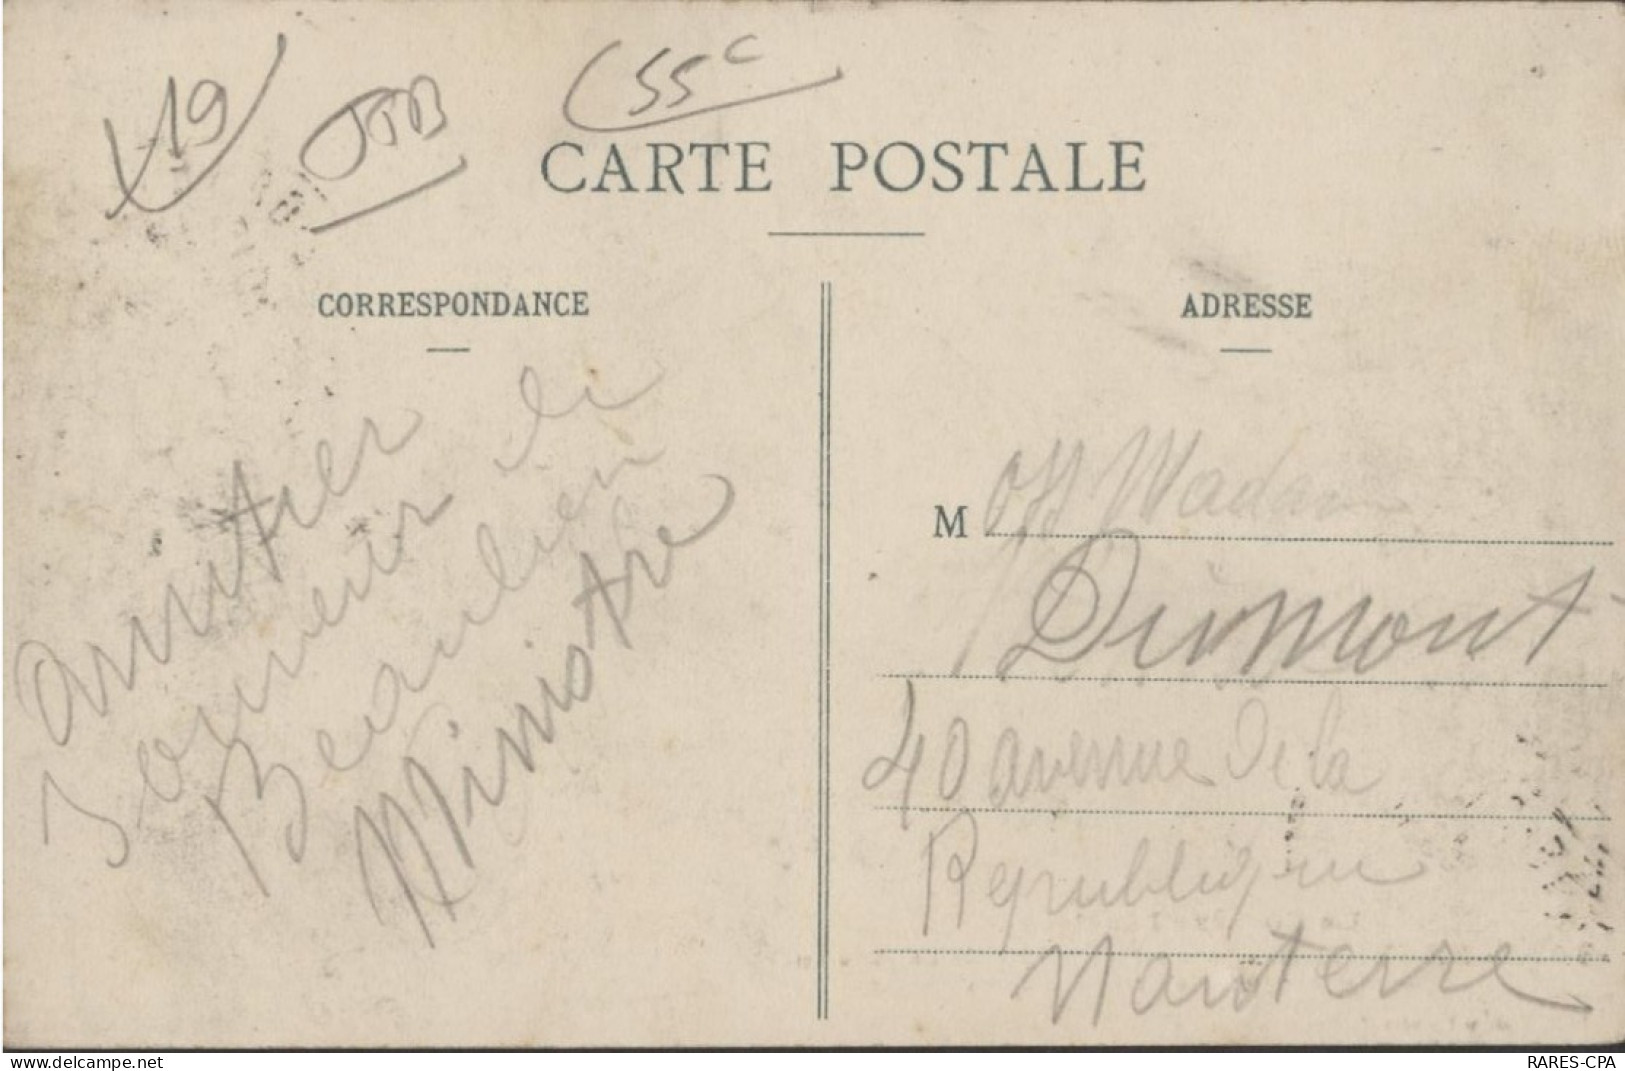 19
55 c
CARTE POSTALE
CORRESPONDANCE
amitier
souvenir de
Beaulieu
Ministre
ADRESSE
M
Madame
Dumont
40 avenue de la
Republique
Nanterre
www.delcampe.net
RARES-CPA